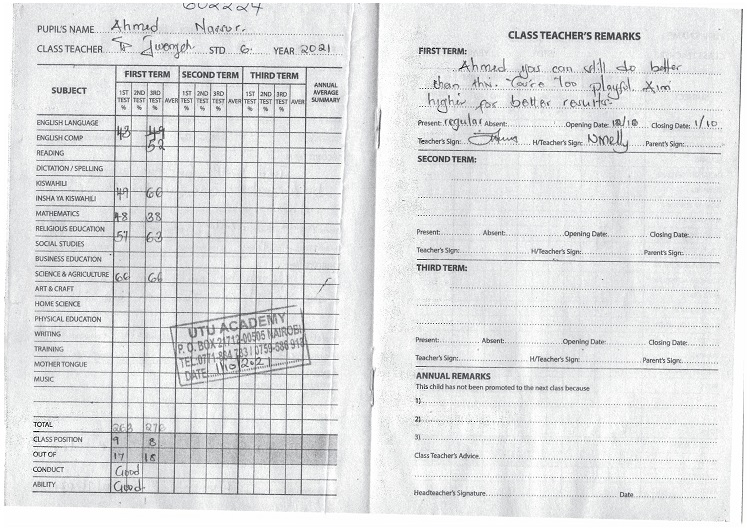 602224
PUPIL'S NAME Ahmed Nassor.
CLASS TEACHER Tr STD 6. YEAR 2021
SUBJECT FIRST TERM SECOND TERM THIRD TERM ANNUAL AVERAGE SUMMARY
1ST TEST % 2ND TEST % 3RD TEST % AVER 1ST TEST % 2ND TEST % 3RD TEST % AVER 1ST TEST % 2ND TEST % 3RD TEST % AVER
ENGLISH LANGUAGE
ENGLISH COMP 43 49
READING 52
DICTATION / SPELLING
KISWAHILI
INSHA YA KISWAHILI 49 66
MATHEMATICS 48 38
RELIGIOUS EDUCATION
SOCIAL STUDIES 57 63
BUSINESS EDUCATION
SCIENCE & AGRICULTURE 66 66
ART & CRAFT
HOME SCIENCE
PHYSICAL EDUCATION
WRITING
TRAINING
MOTHER TONGUE
MUSIC
UTU ACADEMY
P. O. BOX 21712-00505 NAIROBI
DATE 1/10/2021
TOTAL 263 270
CLASS POSITION 9 8
OUT OF 17 18
CONDUCT Good
ABILITY Good.
CLASS TEACHER'S REMARKS
FIRST TERM:
Ahmed you can still do better
than this. You're too playful. Aim
higher for better results.
Present: regular Absent: Opening Date: Closing Date: 1/10
Teacher's Sign: H/Teacher's Sign: Nmelly Parent's Sign:
SECOND TERM:
Present: Absent: Opening Date: Closing Date:
Teacher's Sign: H/Teacher's Sign: Parent's Sign:
THIRD TERM:
Present: Absent: Opening Date: Closing Date:
Teacher's Sign: H/Teacher's Sign: Parent's Sign:
ANNUAL REMARKS
This child has not been promoted to the next class because
1)
2)
3)
Class Teacher's Advice
Headteacher's Signature Date